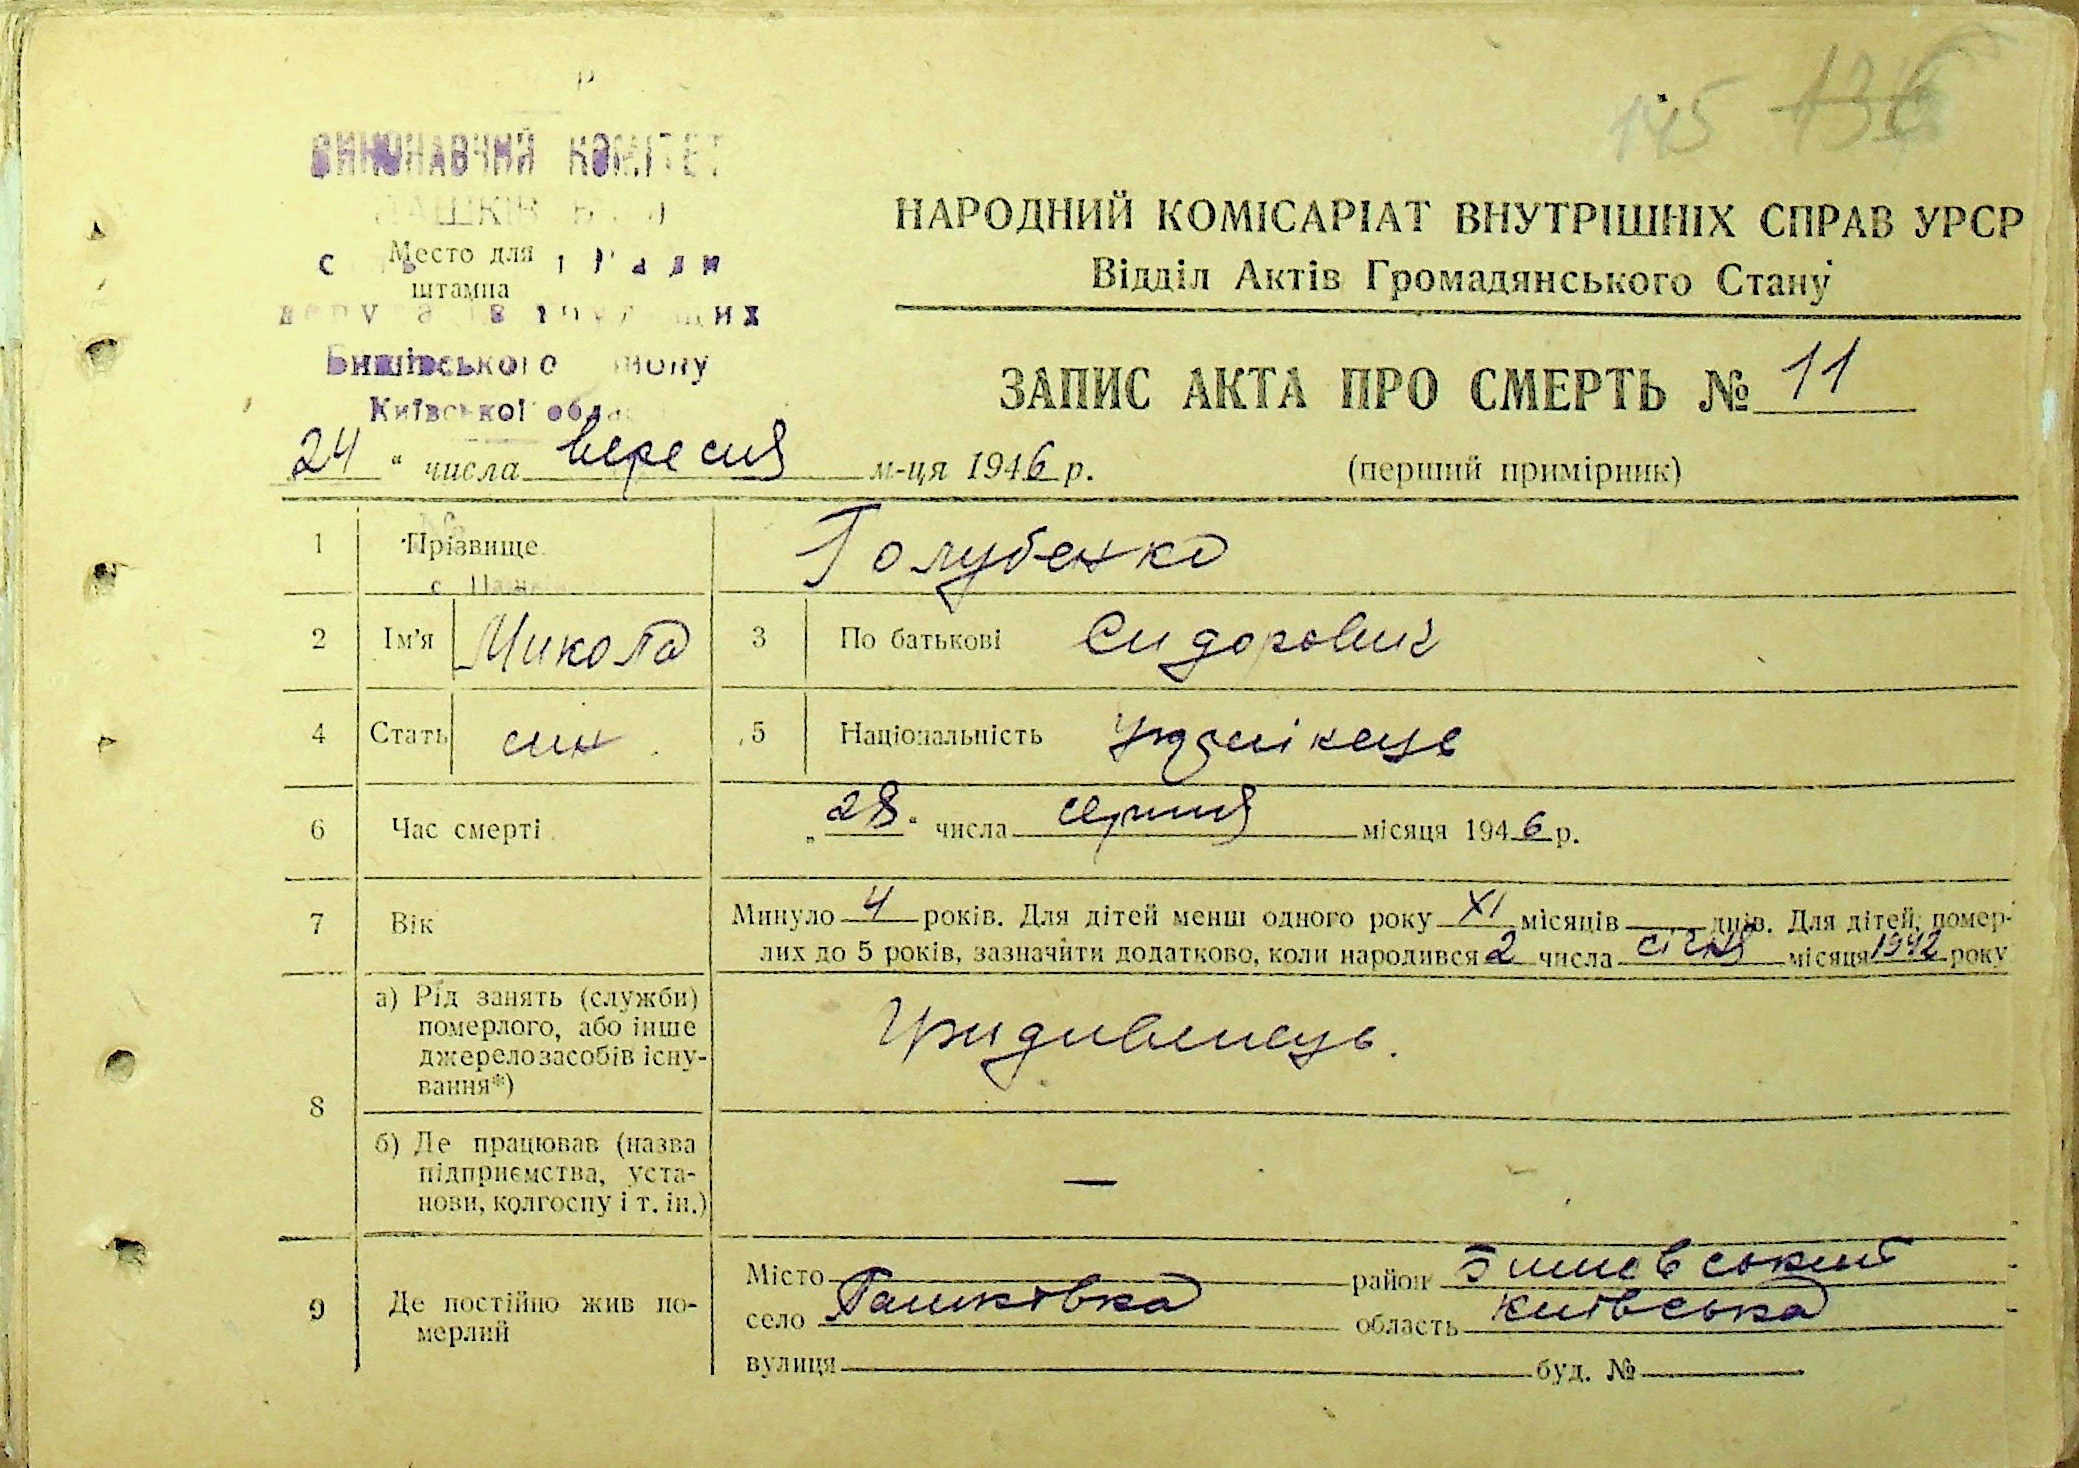 145 136
ВИКОНАВЧИЙ КОМІТЕТ
Место для
штампа
Бишівського
Київської
НАРОДНИЙ КОМІСАРІАТ ВНУТРІШНІХ СПРАВ УРСР
Відділ Актів Громадянського Стану
ЗАПИС АКТА ПРО СМЕРТЬ № 11
24 " числа вересня м-ця 1946 р. (перший примірник)
1 Прізвище Голубенко
2 Ім'я Микола 3 По батькові Сидорович
4 Стать син 5 Національність Українець
6 Час смерті „ 28 " числа серпня місяця 1946 р.
7 Вік Минуло 4 років. Для дітей менш одного року XI місяців днів. Для дітей, помер-
лих до 5 років, зазначити додатково, коли народився 2 числа січня місяця 1942 року
8 а) Рід занять (служби)
померлого, або інше
джерело засобів існу-
вання*)
Іждивленець.
б) Де працював (назва
підприємства, уста-
нови, колгоспу і т. ін.)
—
9 Де постійно жив по-
мерлий
Місто район Бишевський
село Пашківка область Київська
вулиця буд. №